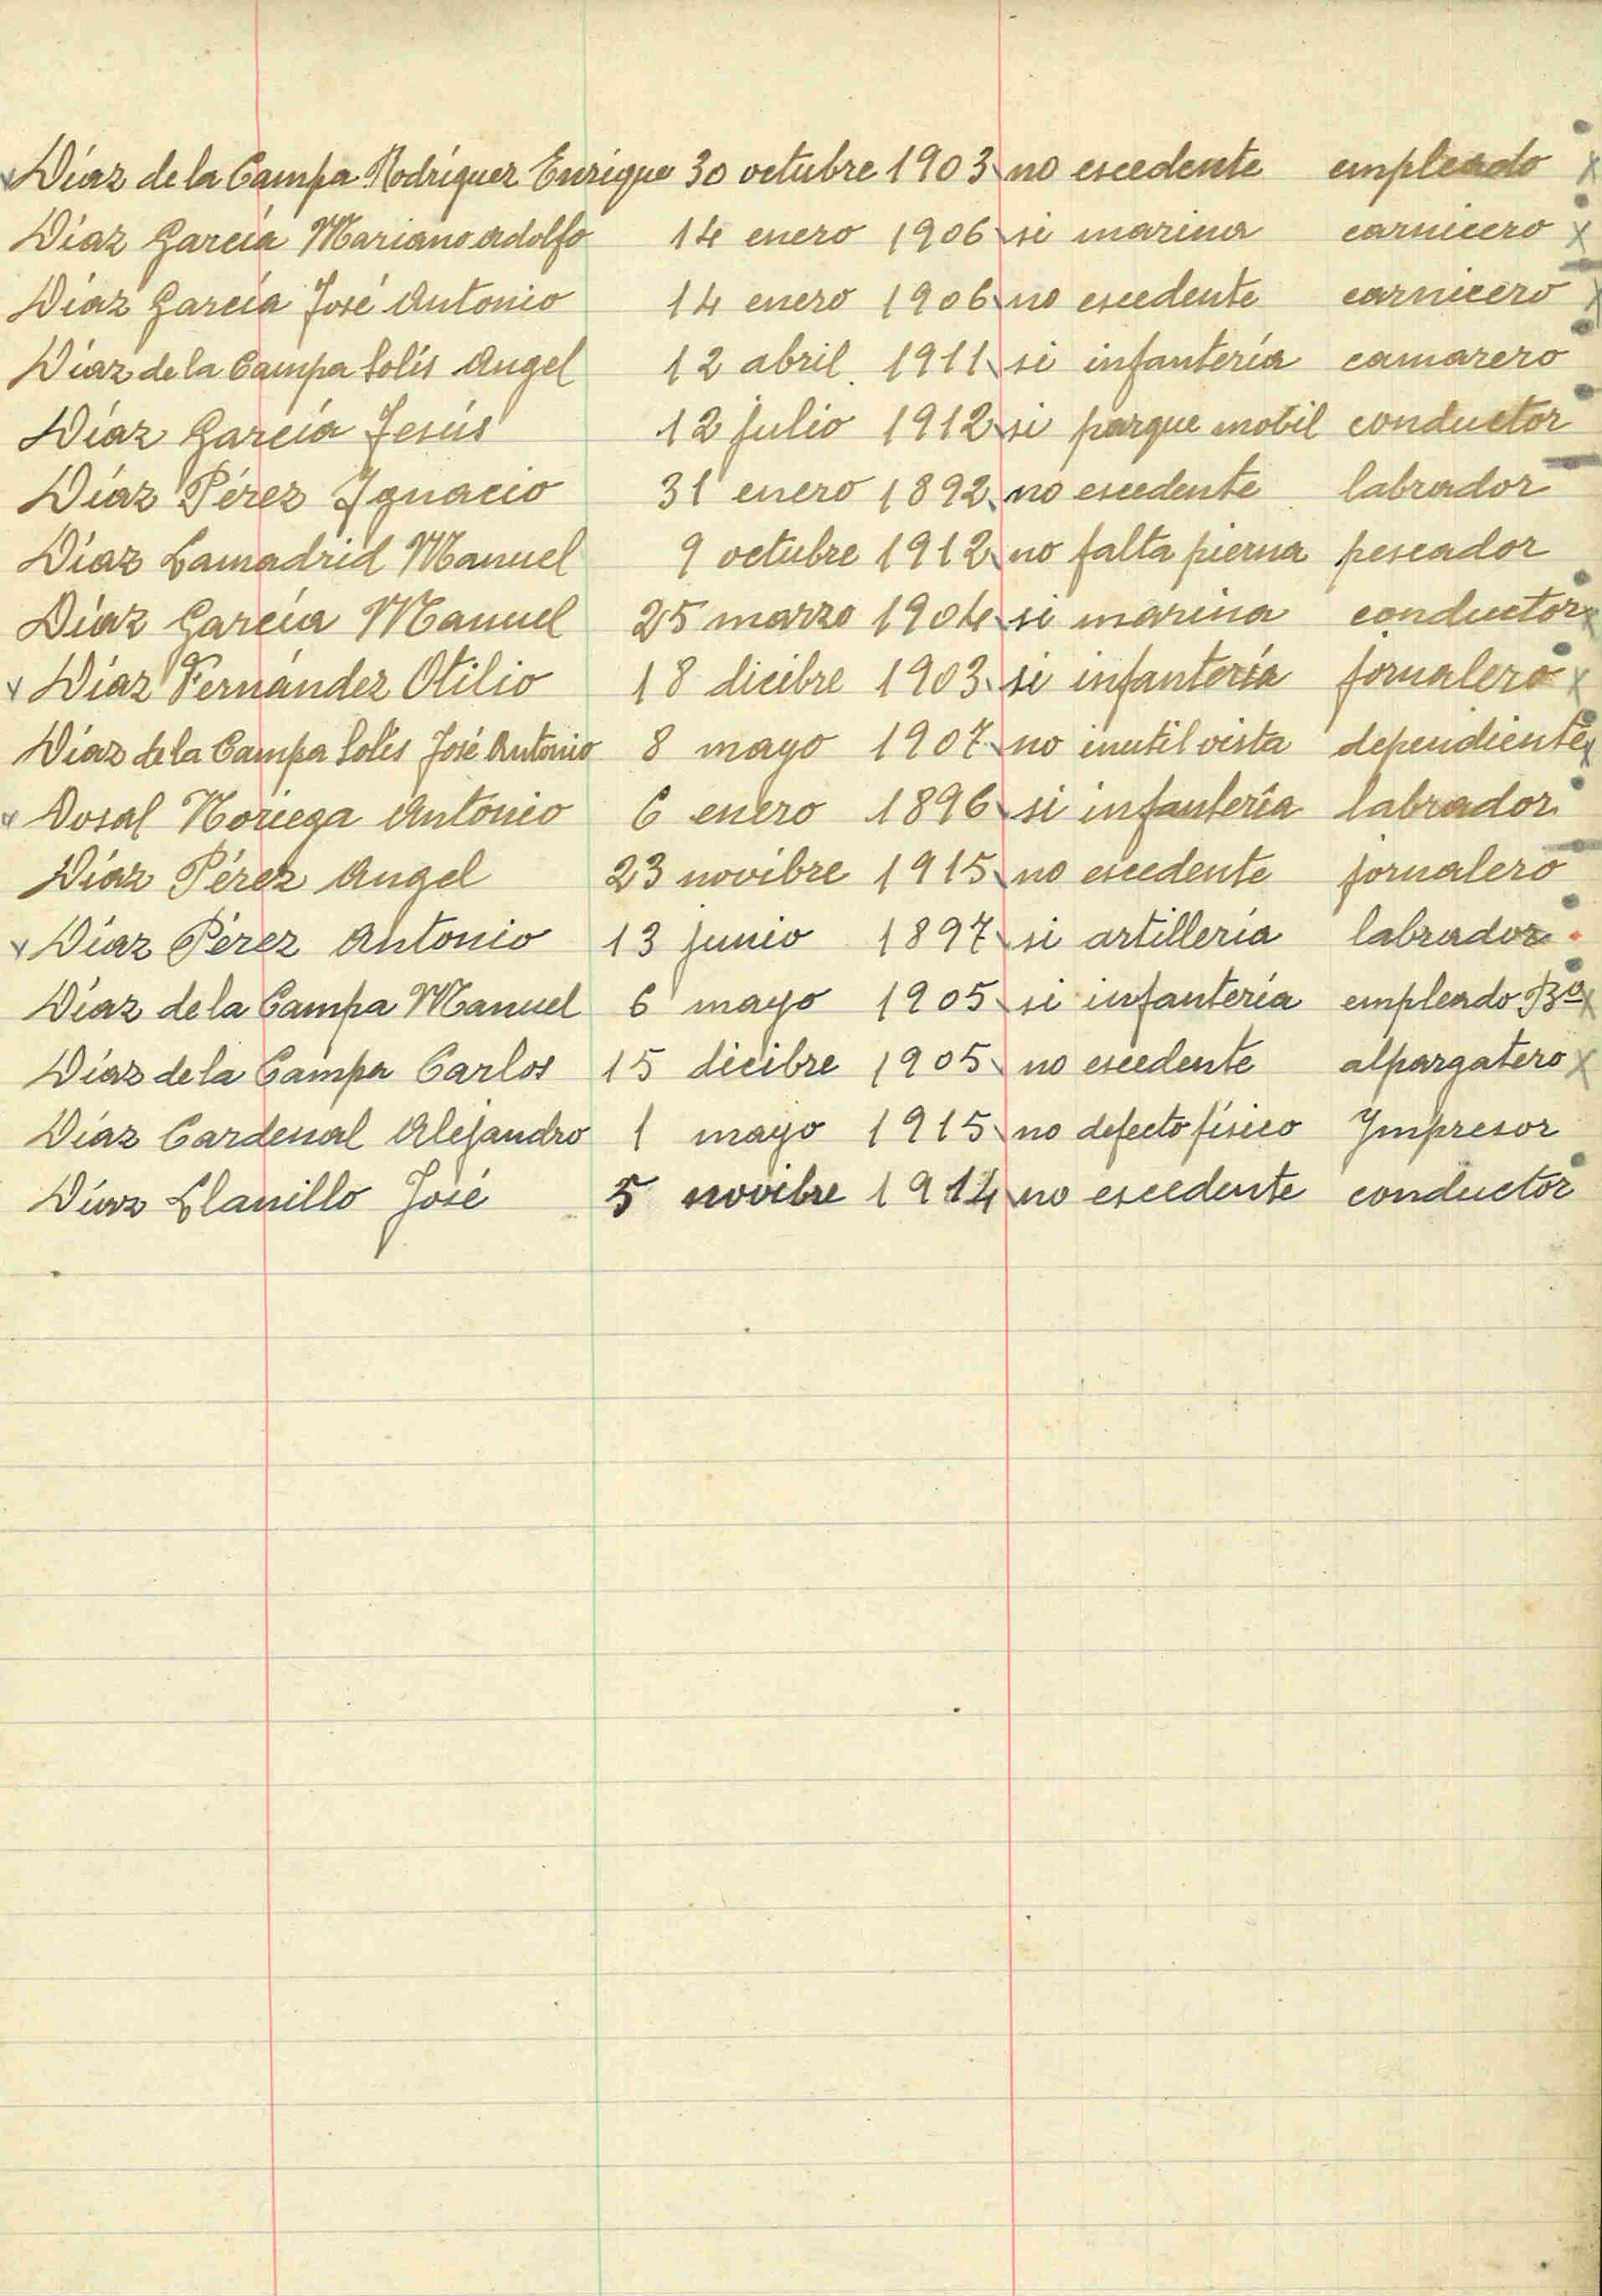 Díaz de la Campa Rodríguez Enrique 30 octubre 1903 no escedente empleado x
Díaz García Mariano Adolfo 14 enero 1906 si marina carnicero x
Díaz García José Antonio 14 enero 1906 no escedente carnicero x
Díaz de la Campa Solís Angel 12 abril 1911 si infantería camarero
Díaz García Jesús 12 julio 1912 si parque mobil conductor
Díaz Pérez Ignacio 31 enero 1892 no escedente labrador
Díaz Lamadrid Manuel 9 octubre 1912 no falta pierna pescador
Díaz García Manuel 25 marzo 1904 si marina conductor x
Díaz Fernández Otilio 18 dicibre 1903 si infantería jornalero x
Díaz de la Campa Solís José Antonio 8 mayo 1907 no inutil vista dependiente x
Dosal Noriega Antonio 6 enero 1896 si infantería labrador
Díaz Pérez Angel 23 novibre 1915 no escedente jornalero
Díaz Pérez Antonio 13 junio 1897 si artillería labrador
Díaz de la Campa Manuel 6 mayo 1905 si infantería empleado Bº x
Díaz de la Campa Carlos 15 dicibre 1905 no escedente alpargatero x
Díaz Cardenal Alejandro 1 mayo 1915 no defecto físico Impresor
Díaz Llanillo José 5 novibre 1914 no escedente conductor